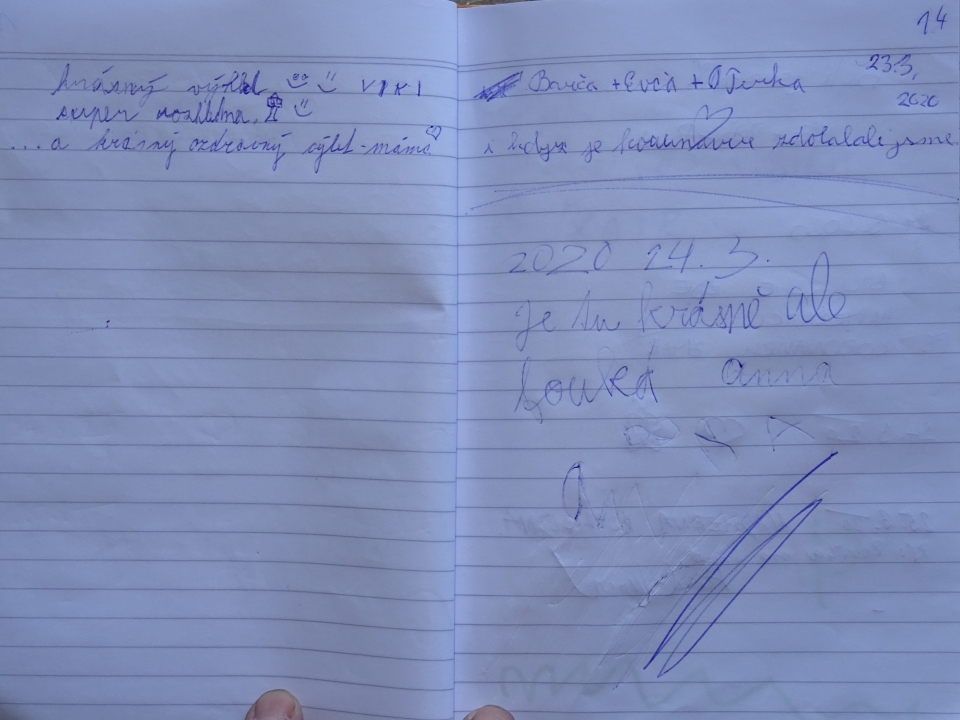 krásný výhled VIKI
super rozhledna.
... a krásný ozdravný výlet - máma
14
23.3.
2020
Barča + Evča + Terka
i když je koronavir zdolali jsme
2020 24.3.
je tu krásně ale
fouká anna